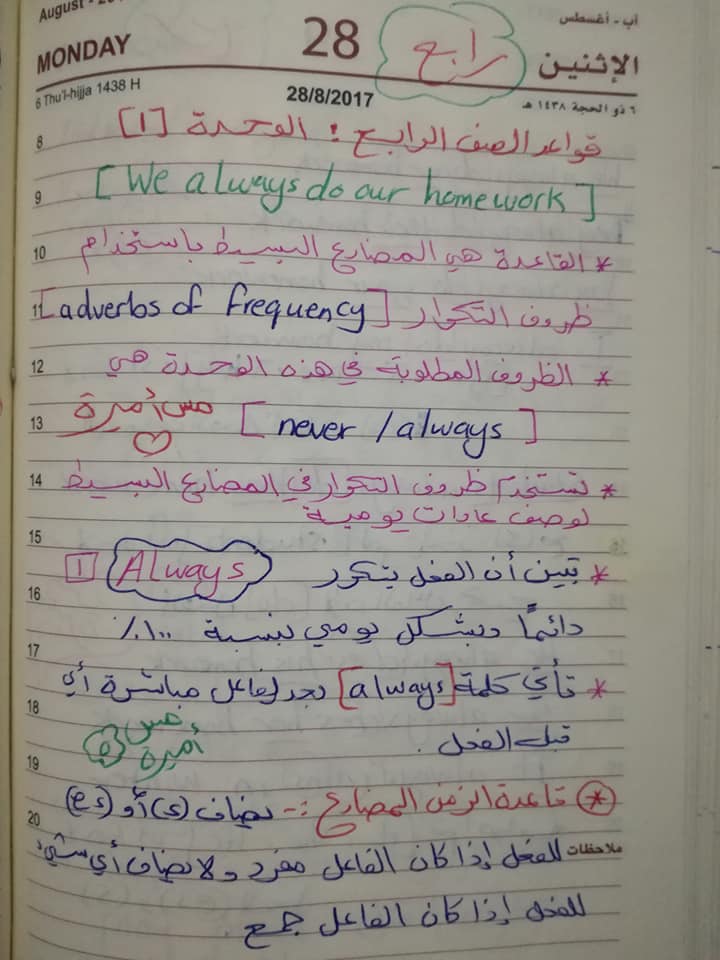 August
آب - أغسطس
MONDAY 28 رابع الإثنين
6 Thu'l-hijja 1438 H 28/8/2017 ٦ ذو الحجة ١٤٣٨ هـ
8 قواعد الصف الرابع : الوحدة [1]
9 [We always do our homework]
10 * القاعدة هي المضارع البسيط باستخدام
11 ظروف التكرار [adverbs of frequency]
12 * الظروف المطلوبة في هذه الوحدة هي
13 [never / always] مس أميرة
14 * تستخدم ظروف التكرار في المضارع البسيط
لوصف عادات يومية
15
* تبين أن الفعل يتكرر Always 1
16
دائمًا وبشكل يومي بنسبة ١٠٠٪
17
* تأتي كلمة [always] بعد الفاعل مباشرة أي
18
قبل الفعل . مس أميرة
19
* قاعدة الزمن المضارع :- يضاف (s) أو (es)
20
ملاحظات للفعل إذا كان الفاعل مفرد ولا يضاف أي شيء
للفعل إذا كان الفاعل جمع .